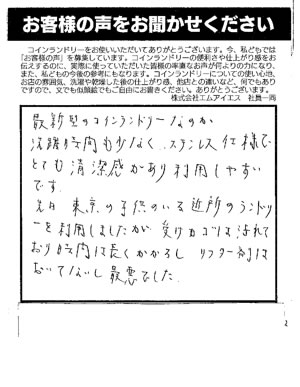 お客様の声をお聞かせください
コインランドリーをお使いいただいてありがとうございます。今、私どもでは
「お客様の声」を募集しています。コインランドリーの便利さや仕上がり感をお
伝えするのに、実際に使っていただいた皆様の率直なお声が何よりの力になり、
また、私どもの今後の参考にもなります。コインランドリーについての使い心地、
お店の雰囲気、洗濯や乾燥した後の仕上がり感、他店との違いなど、何でもあり
ですので、文でも似顔絵でもご自由にお書きください。ありがとうございます。
株式会社エムアイエス 社員一同
最新型のコインランドリーなのか
洗濯時間も少なく、ステンレス仕様で
とても清潔感があり利用しやすい
です。
先日 東京の子供のいる近所のランドリ
ーを利用しましたが 受けカゴは汚れて
おり時間は長くかかるし ソフター剤は
おいてないし最悪でした